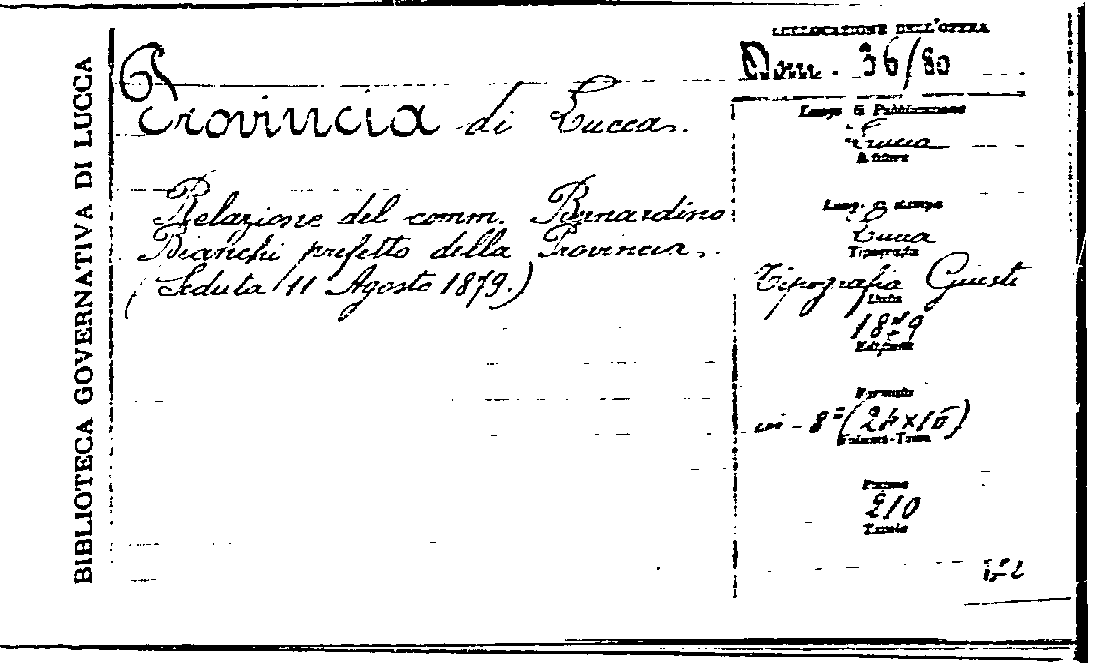 BIBLIOTECA GOVERNATIVA DI LUCCA
Provincia di Lucca.
Relazione del comm. Bernardino
Bianchi prefetto della Provincia.
(Seduta 11 Agosto 1879.)
COLLOCAZIONE DELL'OPERA
36/80
Luogo di Pubblicazione
Lucca
Editore
Luogo di stampa
Lucca
Tipografia
Tipografia Giusti
Data
1879
Edizione
Formato
in-8º (24×16)
Pagine
210
Tavole